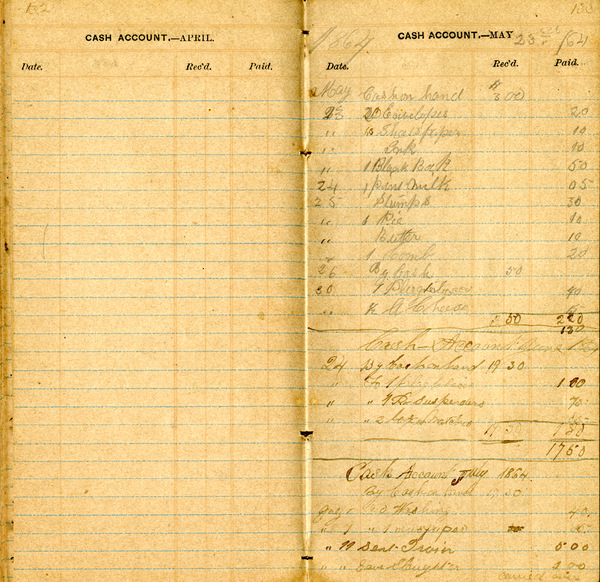 152
CASH ACCOUNT.—APRIL.
Date. Rec'd. Paid.
153
1864.
CASH ACCOUNT.—MAY 23 /64
Date. Rec'd. Paid.
May Cash on hand $3 00
23 20 Envelopes 20
" 10 Sheets paper 10
" Ink 10
" 1 Blank Book 50
24 1 pint Milk 05
25 Stamps 30
" 1 Pie 10
" Butter 10
" 1 Comb 20
26 By Cash 50
30 40
" Cheese
50 2 20
1 30
Cash Account June
24 By Cash on hand 19 30
" 1 00
" " 1 Pr Suspenders 70
" " 2 box Matches
19 30 1 80
17 50
Cash Account July 1864
By Cash on hand 17 50
July Washing 40
" " 1 newspaper
" 11 Sent Irwin 5 00
" " 2 00